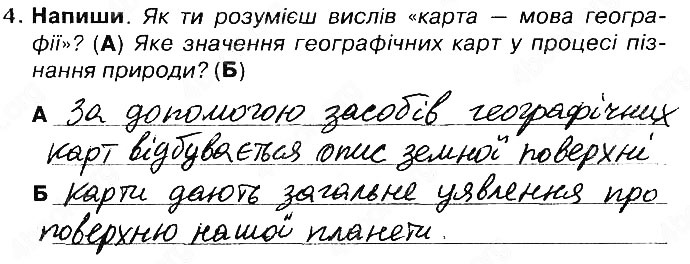 4. Напиши. Як ти розумієш вислів «карта — мова геогра-
фії»? (А) Яке значення географічних карт у процесі піз-
нання природи? (Б)
А За допомогою засобів географічних
карт відбувається опис земної поверхні
Б Карти дають загальне уявлення про
поверхню нашої планети.